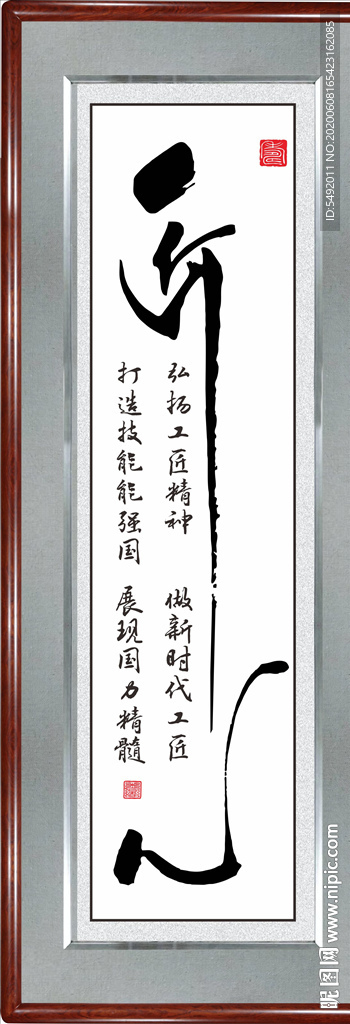 匠心
弘扬工匠精神 做新时代工匠
打造技能能强国 展现国力精髓
ID:5492011 NO:20200608165423162085
昵图网 www.nipic.com